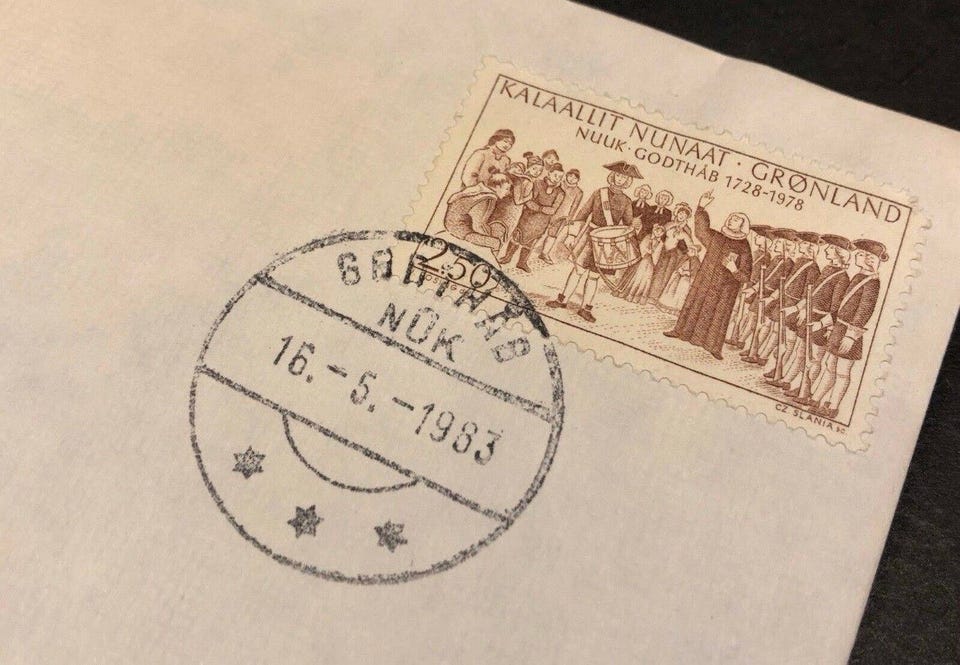 KALAALLIT NUNAAT · GRØNLAND
NUUK · GODTHÅB 1728-1978
2.50
CZ SLANIA SC
GODTHÅB
NÛK
16.-5.-1983